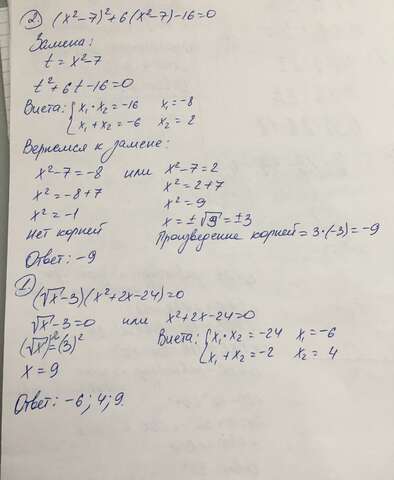 ② (x²-7)²+6(x²-7)-16=0
Замена:
t=x²-7
t²+6t-16=0
Виета: { x₁·x₂=-16 x₁=-8
x₁+x₂=-6 x₂=2
Вернемся к замене:
x²-7=-8 или x²-7=2
x²=-8+7 x²=2+7
x²=-1 x²=9
Нет корней x=±√9=±3
Произведение корней=3·(-3)=-9
Ответ: -9
① (√x-3)(x²+2x-24)=0
√x-3=0 или x²+2x-24=0
(√x)²=(3)² Виета: { x₁·x₂=-24 x₁=-6
x₁+x₂=-2 x₂=4
x=9
Ответ: -6; 4; 9.